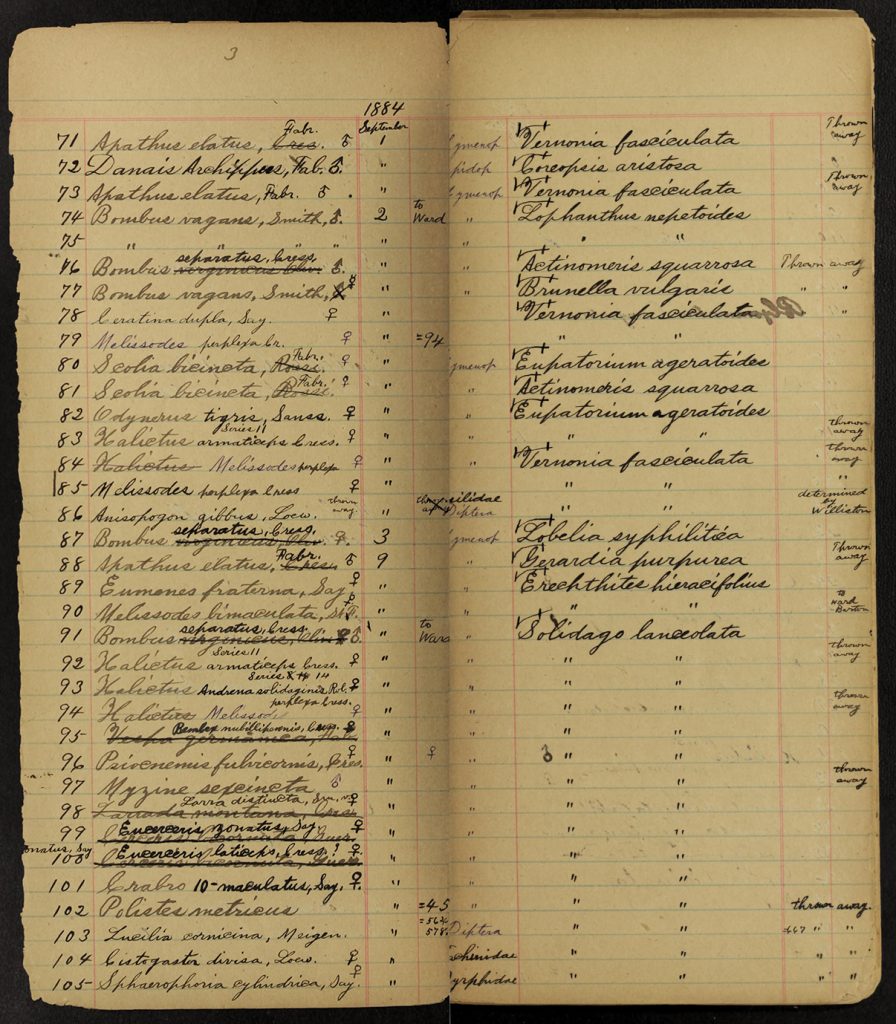 3
1884
September
71 Apathus elatus, Cres. Fabr. ♂ 1 ymenop Vernonia fasciculata Thrown away
72 Danais Archippus, Fab. ♂. " pidop Coreopsis aristosa "
73 Apathus elatus, Fabr. ♂ " ymenop Vernonia fasciculata Thrown away
74 Bombus vagans, Smith, ♂. 2 to Ward " Lophanthus nepetoides
75 " " " " " " "
76 Bombus virginicus Oliv. separatus, Cress. ♂. " " Actinomeris squarrosa Thrown away
77 Bombus vagans, Smith, ☿ " " Brunella vulgaris " "
78 Ceratina dupla, Say ♀ " Vernonia fasciculata "
79 Melissodes perplexa Cr. ♀ " =94 " "
80 Scolia bicincta, Rossi. Fabr. ♀ " ymenop Eupatorium ageratoides
81 Scolia bicincta, Rossi. Fabr. ♀ " " Actinomeris squarrosa
82 Odynerus tigris, Sauss. ♀ " " Eupatorium ageratoides
83 Halictus Series 11 armaticeps Cress. ♀ " " " " thrown away
84 Halictus Melissodes perplexa ♀ " " Vernonia fasciculata thrown away
85 Melissodes perplexa Cress ♀ " " " "
86 Anisopogon gibbus, Loew. thrown away. " thrown away silidae Diptera " " determined by Williston
87 Bombus virginicus, Oliv. separatus, Cress. ♀. 3 ymenop Lobelia syphilitica
88 Apathus elatus, Cres. Fabr. ♂ 9 " Gerardia purpurea Thrown away
89 Eumenes fraterna, Say ♀ " " Erechthites hieracifolius
90 Melissodes bimaculata, St F. ♀ " " " " to Ward Barton
91 Bombus virginicus, Oliv. separatus, Cress. ♂. " to Ward " Solidago lanceolata
92 Halictus Series 11 armaticeps Cress. ♀ " " " " thrown away
93 Halictus Series 14 Andrena solidaginis Rob. ♀ " " " "
94 Halictus Melissodes perplexa Cress. ♀ " " " " thrown away
95 Vespa germanica, Fab. Bembex nubilipennis, Cress. ♀ " " " "
96 Psioenemis fulvicornis, Cres. ♀ " ♀ " ♂ " "
97 Myzine sexcincta ♂ " " " " thrown away
98 Larrada montana, Cres. Larra distincta, Sm. ♀ " " " "
99 Cerceris Eucerceris zonatus, Say ♀ " " " "
onatus, Say 100 Cerceris Eucerceris laticeps, Cress.? ♀. " " " "
101 Crabro 10-maculatus, Say. ♀. " " " "
102 Polistes metricus " =45 " " " thrown away.
103 Lucilia cornicina, Meigen. " =564 578. Diptera " " 667 " "
104 Cistogaster divisa, Loew. ♀ " achinidae " " " "
105 Sphaerophoria cylindrica, Say. ♀ " yrphidae " " " "